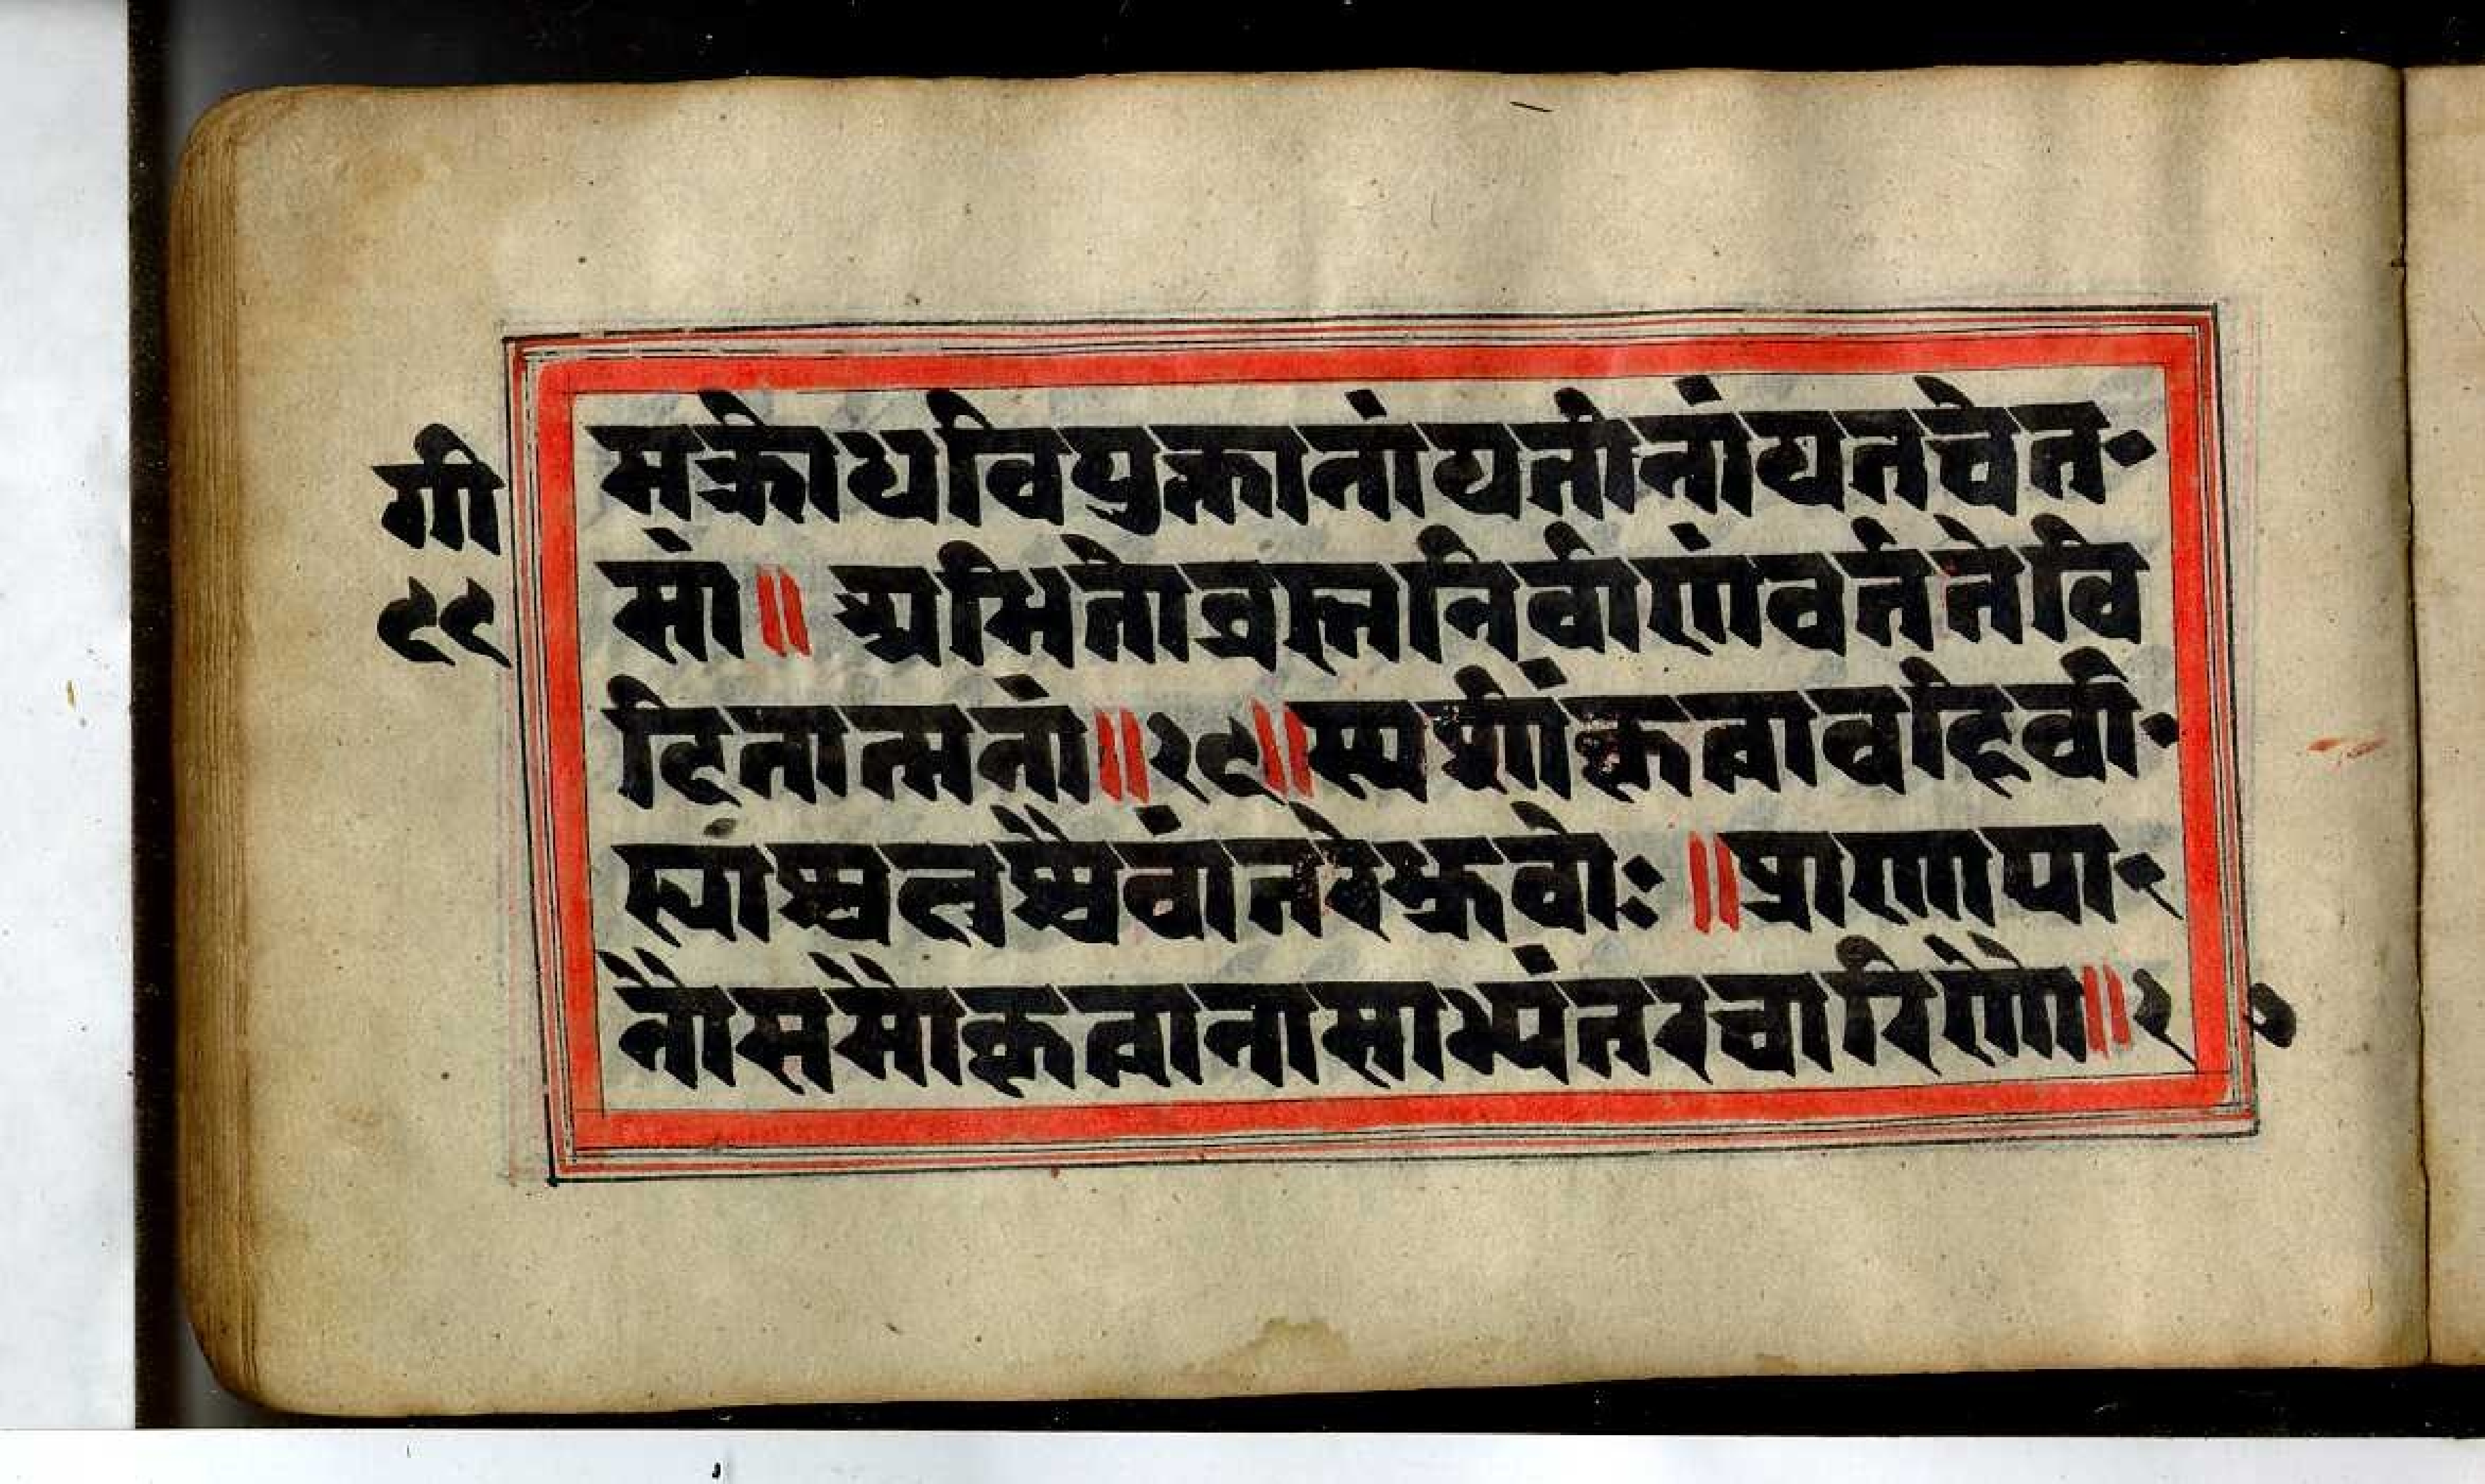 गी
९९
मक्रोधवियुक्तानांयतीनांयतचेत-
सां॥ अभितोब्रह्मनिर्वाणंवर्ततेवि
दितात्मनां॥२९॥स्पर्शांकृत्वावहिर्वा-
ह्यांश्चक्षुश्चैवांतरेभ्रुवोः॥प्राणापा-
नौसमौकृत्वानासाभ्यंतरचारिणौ॥२०